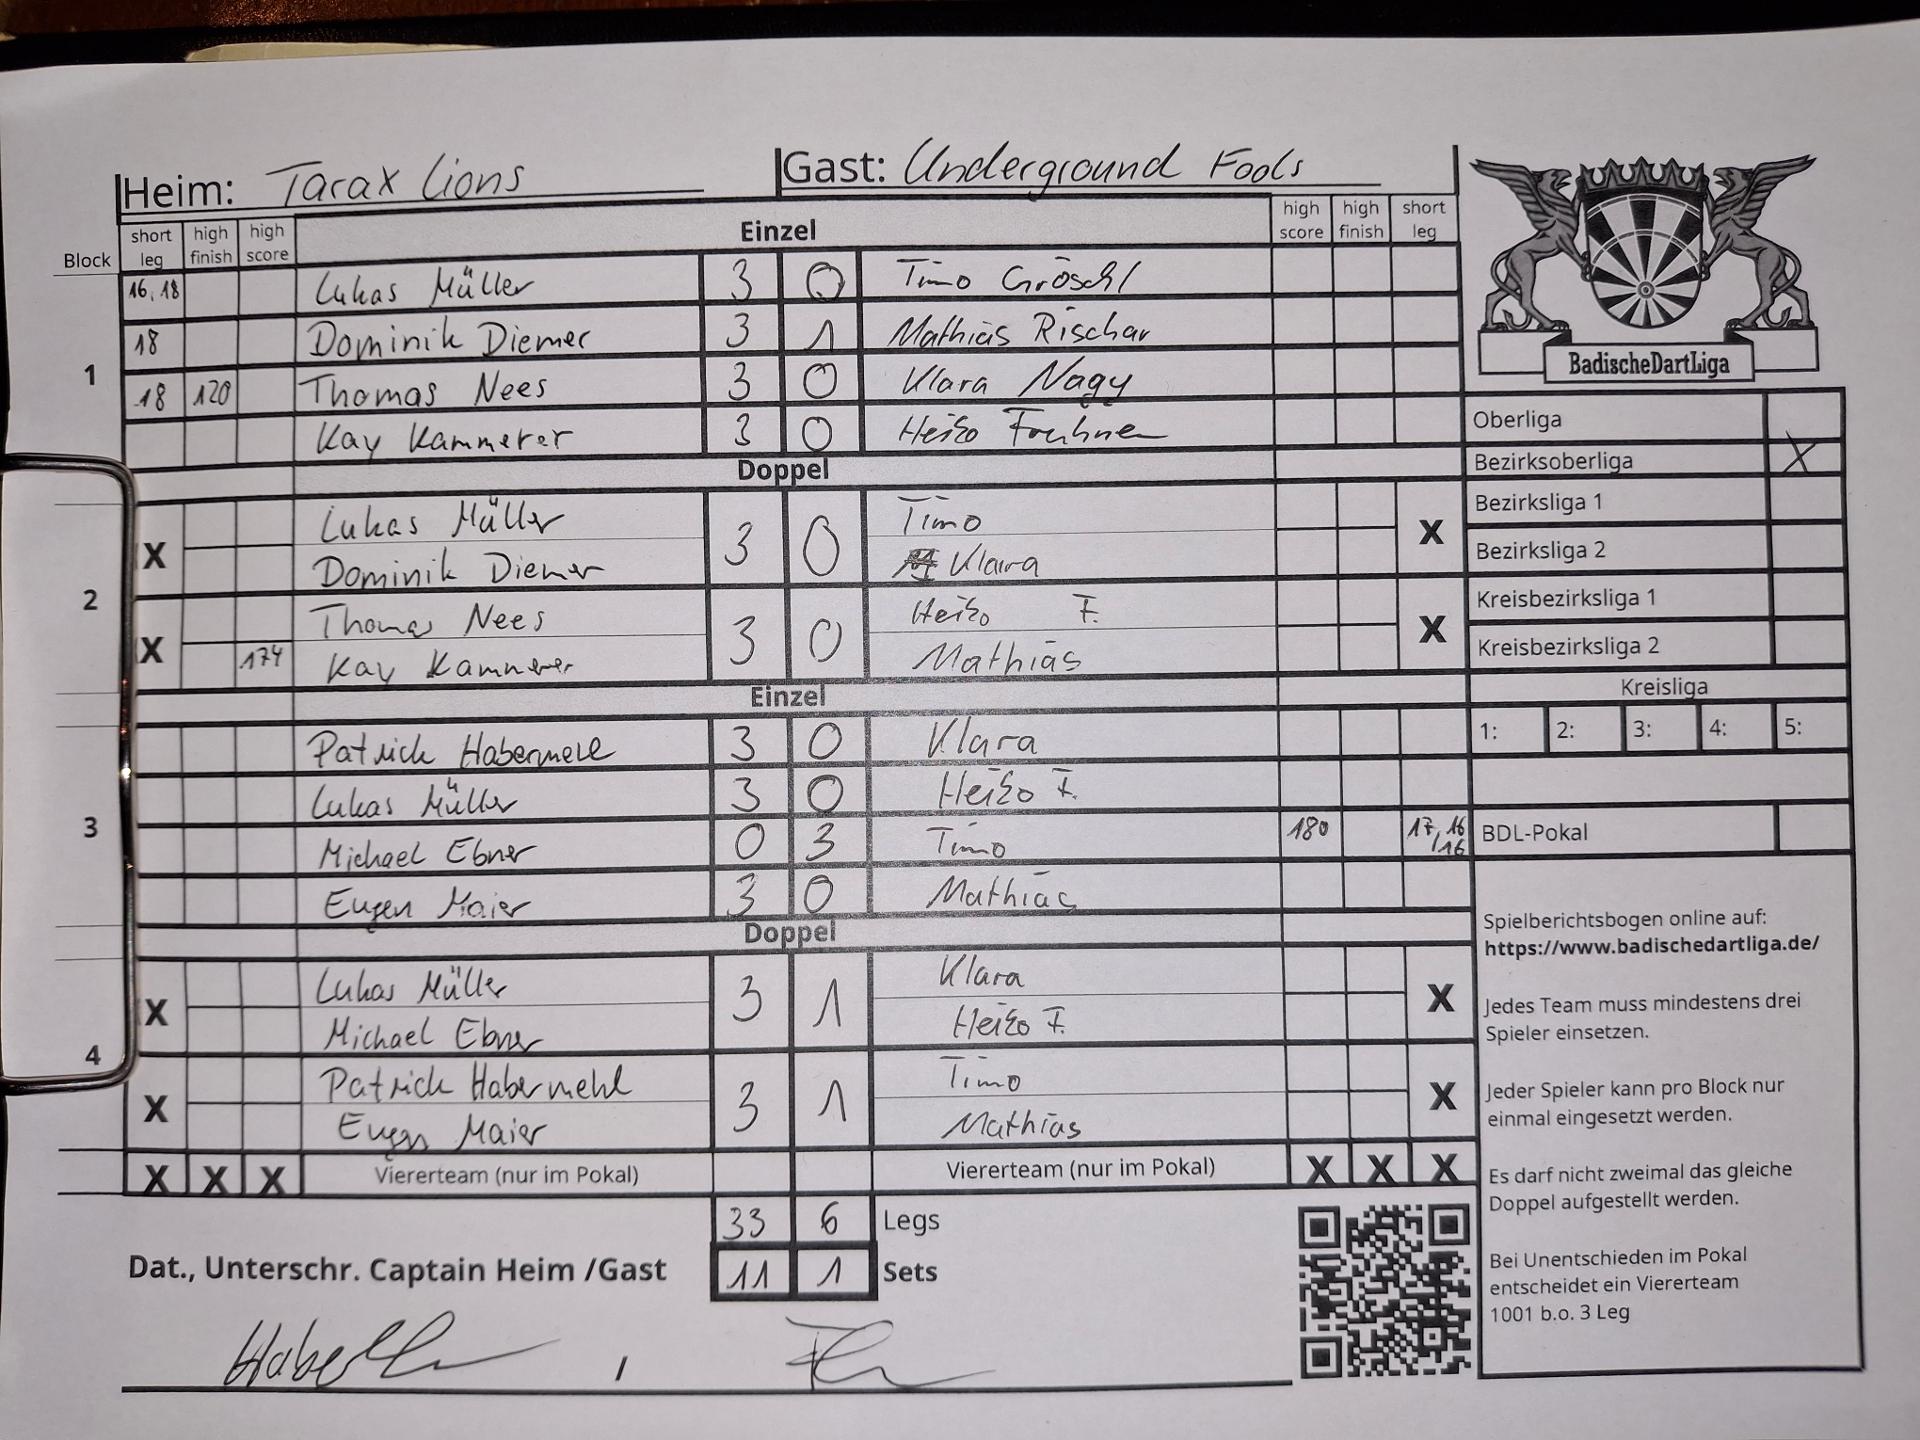 Heim: Tarax Lions Gast: Underground Fools
Block short leg high finish high score Einzel high score high finish short leg
1
16, 18 Lukas Müller 3 0 Timo Gröschl
18 Dominik Diemer 3 1 Mathias Rischar
18 120 Thomas Nees 3 0 Klara Nagy
Kay Kammerer 3 0 Heiko
Doppel
2
X Lukas Müller 3 0 Timo X
Dominik Diemer Klara
X Thomas Nees 3 0 Heiko F. X
174 Kay Kammerer Mathias
Einzel
3
Patrick Habermehl 3 0 Klara
Lukas Müller 3 0 Heiko F.
Michael Ebner 0 3 Timo 180 17, 16, 16
Eugen Maier 3 0 Mathias
Doppel
4
X Lukas Müller 3 1 Klara X
Michael Ebner Heiko F.
X Patrick Habermehl 3 1 Timo X
Eugen Maier Mathias
X X X Viererteam (nur im Pokal) Viererteam (nur im Pokal) X X X
33 6 Legs
Dat., Unterschr. Captain Heim /Gast 11 1 Sets
BadischeDartLiga
Oberliga
Bezirksoberliga X
Bezirksliga 1
Bezirksliga 2
Kreisbezirksliga 1
Kreisbezirksliga 2
Kreisliga
1: 2: 3: 4: 5:
BDL-Pokal
Spielberichtsbogen online auf:
https://www.badischedartliga.de/
Jedes Team muss mindestens drei
Spieler einsetzen.
Jeder Spieler kann pro Block nur
einmal eingesetzt werden.
Es darf nicht zweimal das gleiche
Doppel aufgestellt werden.
Bei Unentschieden im Pokal
entscheidet ein Viererteam
1001 b.o. 3 Leg